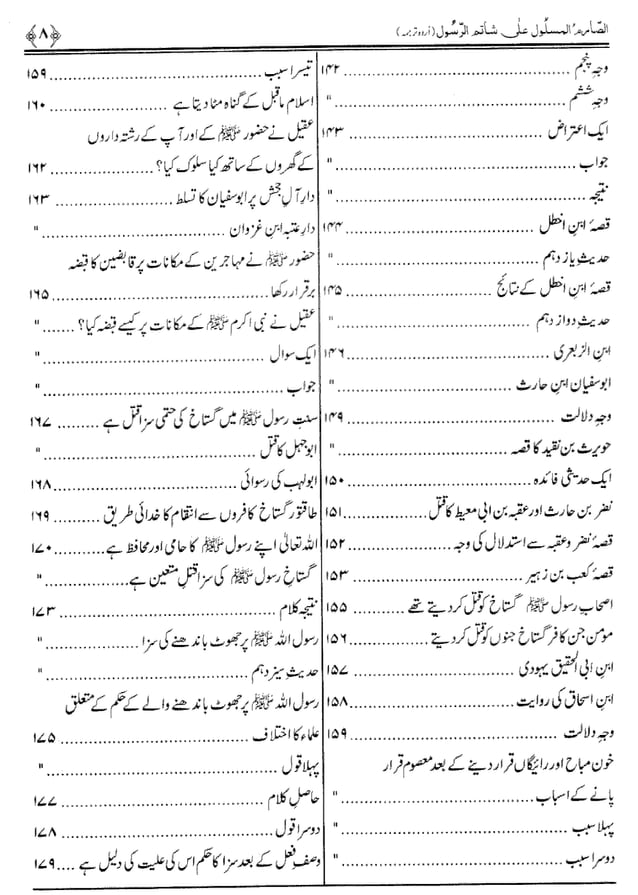 الصّارم المسلول علیٰ شاتم الرّسُول (اُردو ترجمہ) ﴿۸﴾
وجہِ پنجم ........ ۱۴۲
وجہِ ششم ........ "
ایک اعتراض ........ ۱۴۳
جواب ........ "
نتیجہ ........ "
قصۂ ابنِ اخطل ........ ۱۴۴
حدیثِ یازدہم ........ "
قصۂ ابنِ اخطل کے نتائج ........ ۱۴۵
حدیثِ دوازدہم ........ "
ابن الزبعری ........ ۱۴۶
ابوسفیان ابنِ حارث ........ "
وجہِ دلالت ........ ۱۴۹
حویرث بن نقید کا قصہ ........ "
ایک حدیثی فائدہ ........ ۱۵۰
نضر بن حارث اور عقبہ بن ابی معیط کا قتل ........ ۱۵۱
قصۂ نضر و عقبہ سے استدلال کی وجہ ........ ۱۵۲
قصۂ کعب بن زہیر ........ ۱۵۳
اصحابِ رسول ﷺ گستاخ کو قتل کر دیتے تھے ........ ۱۵۵
مومن جن کافر گستاخ جنوں کو قتل کر دیتے ........ ۱۵۶
ابنِ ابی الحقیق یہودی ........ ۱۵۷
ابنِ اسحاق کی روایت ........ ۱۵۸
وجہِ دلالت ........ ۱۵۹
خون مباح اور رائیگاں قرار دینے کے بعد معصوم قرار
پانے کے اسباب ........ "
پہلا سبب ........ "
دوسرا سبب ........ "
تیسرا سبب ........ ۱۵۹
اسلام ماقبل کے گناہ مٹا دیتا ہے ........ ۱۶۰
عقیل نے حضور ﷺ کے اور آپ کے رشتہ داروں
کے گھروں کے ساتھ کیا سلوک کیا؟ ........ ۱۶۲
دارِ آلِ جحش پر ابوسفیان کا تسلط ........ ۱۶۳
دارِ عتبہ ابنِ غزوان ........ "
حضور ﷺ نے مہاجرین کے مکانات پر قابضین کا قبضہ
برقرار رکھا ........ ۱۶۵
عقیل نے نبی اکرم ﷺ کے مکانات پر کیسے قبضہ کیا؟ ........ "
ایک سوال ........ "
جواب ........ "
سنتِ رسول ﷺ میں گستاخ کی حتمی سزا قتل ہے ........ ۱۶۷
ابوجہل کا قتل ........ "
ابولہب کی رسوائی ........ ۱۶۸
طاقتور گستاخ کافروں سے انتقام کا خدائی طریق ........ ۱۶۹
اللہ تعالیٰ اپنے رسول ﷺ کا حامی اور محافظ ہے ........ ۱۷۰
گستاخِ رسول ﷺ کی سزا قتل متعین ہے ........ "
نتیجۂ کلام ........ ۱۷۳
رسول اللہ ﷺ پر جھوٹ باندھنے کی سزا ........ "
حدیثِ سیزدہم ........ "
رسول اللہ ﷺ پر جھوٹ باندھنے والے کے حکم کے متعلق
علماء کا اختلاف ........ ۱۷۵
پہلا قول ........ "
حاصلِ کلام ........ ۱۷۷
دوسرا قول ........ ۱۷۸
وصفِ فعل کے بعد سزا کا حکم اس کی علیت کی دلیل ہے .... ۱۷۹